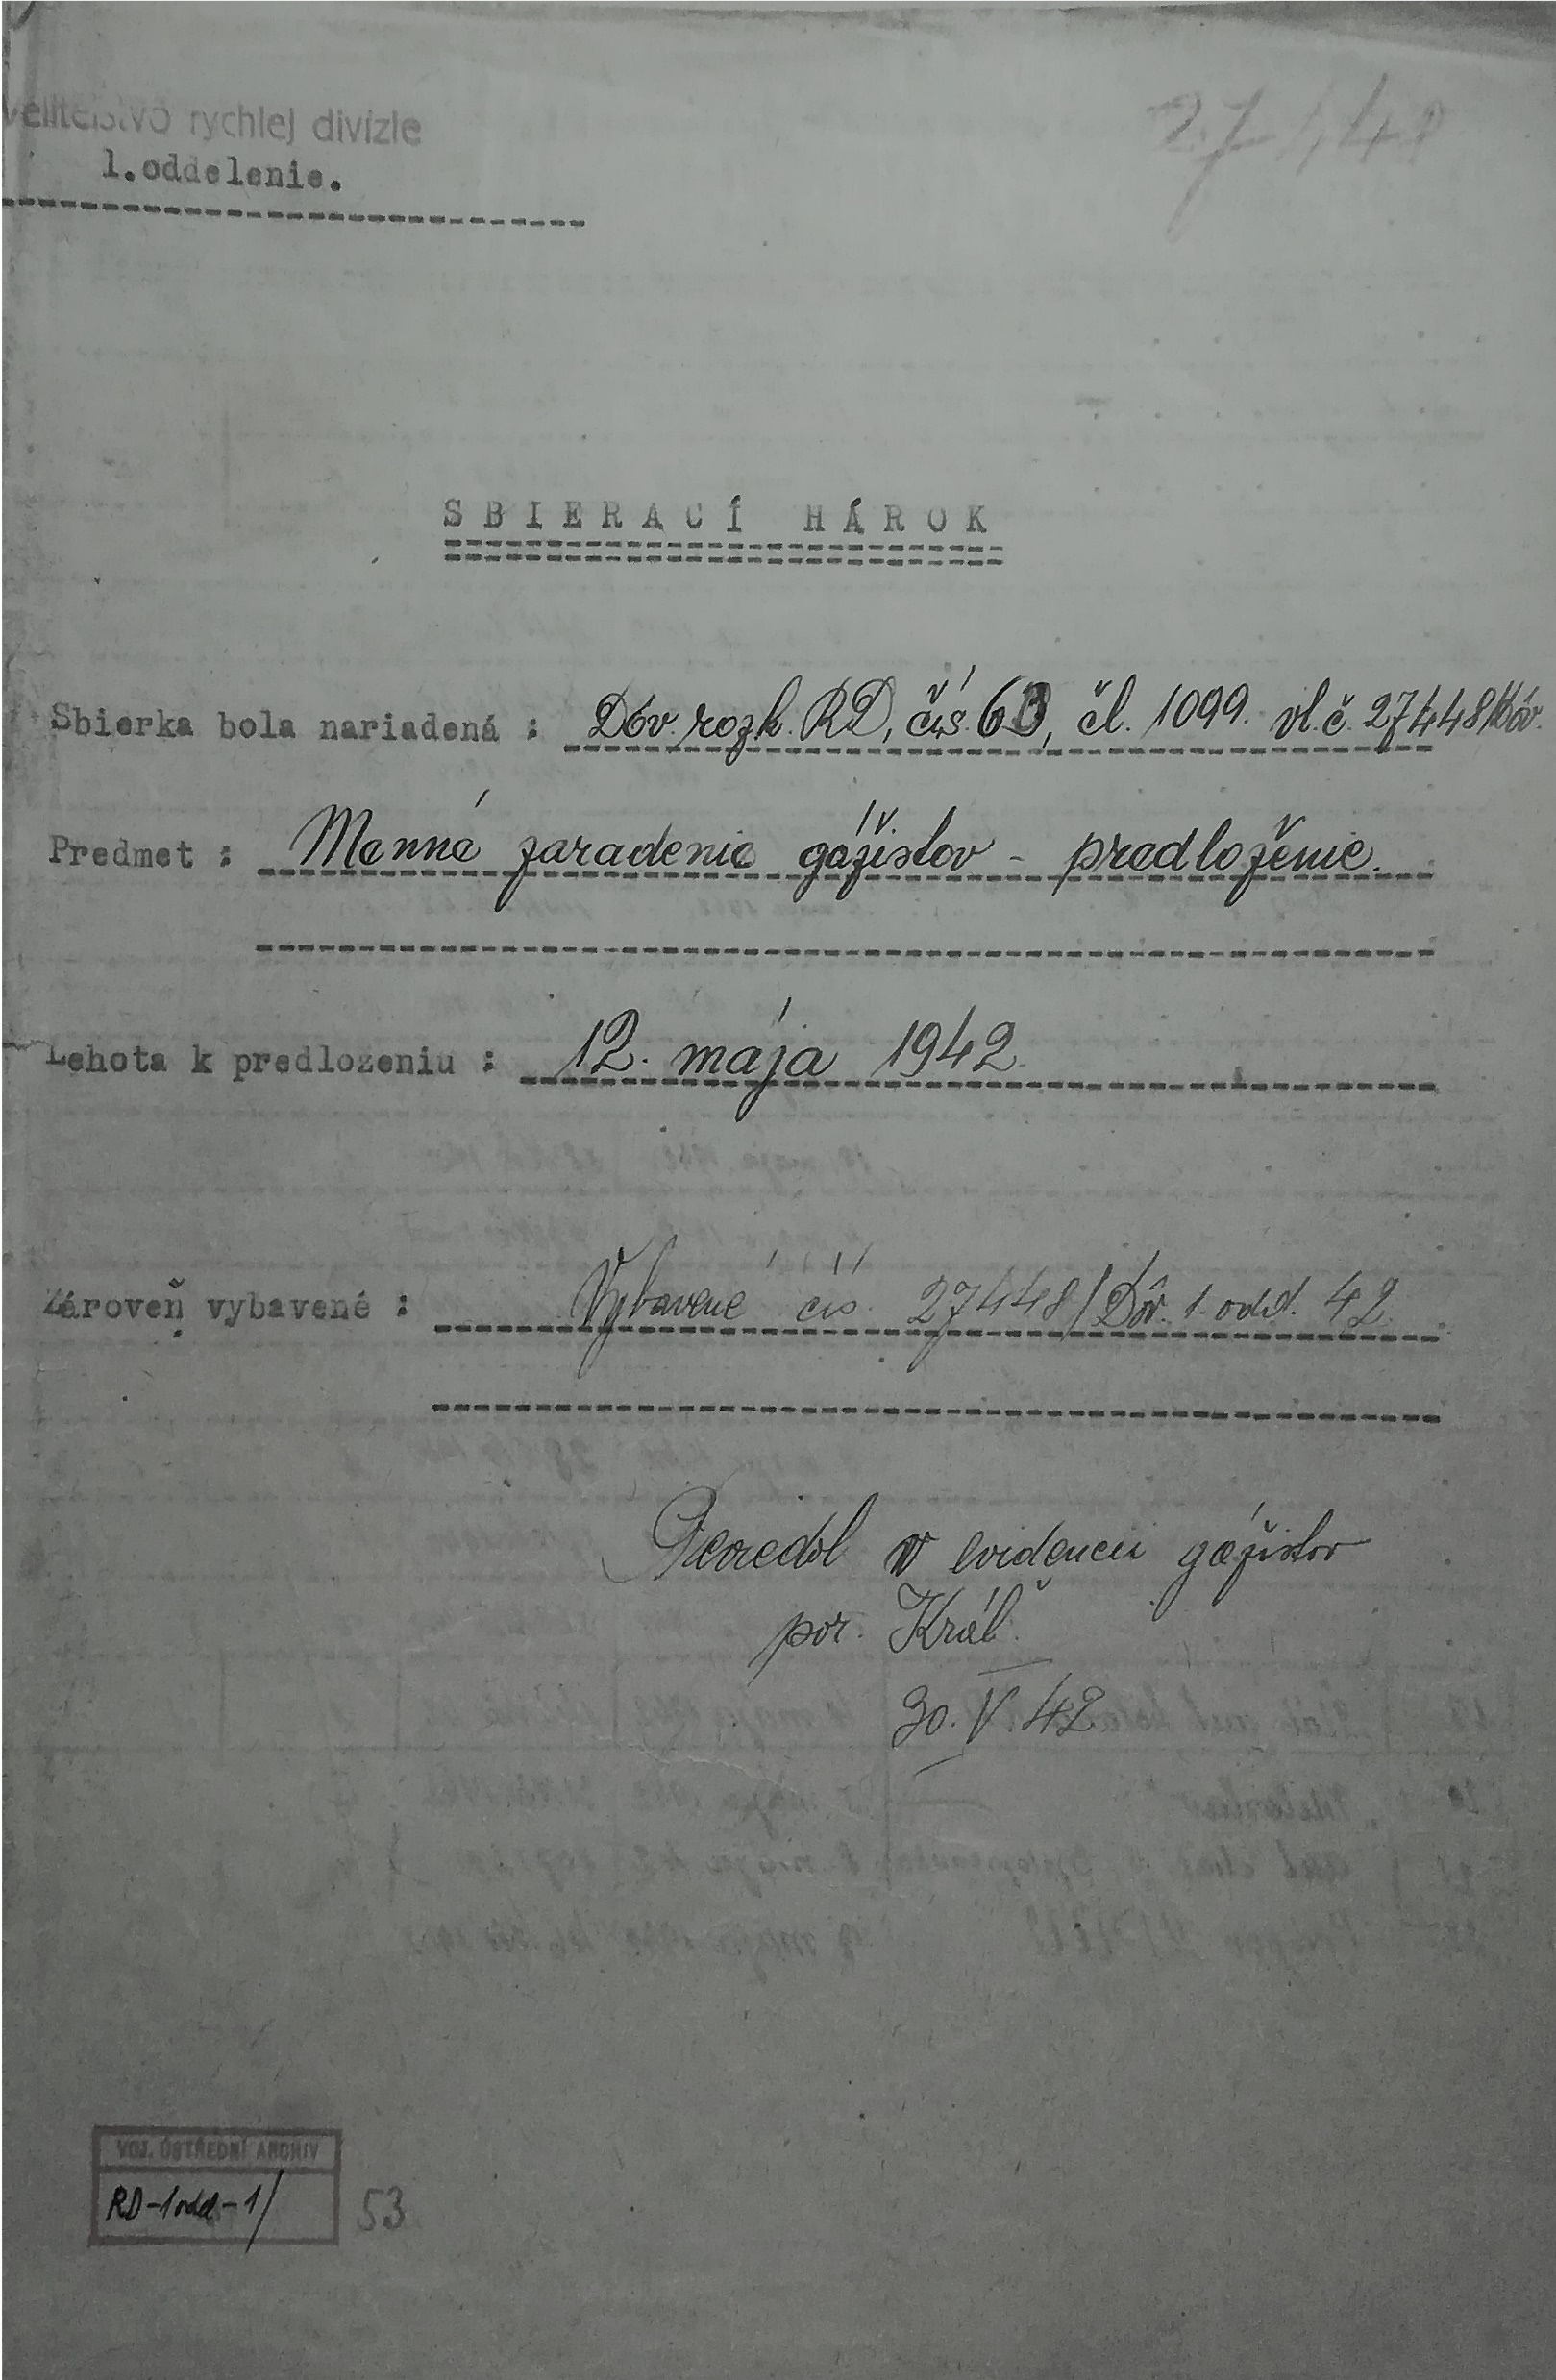 Velitelstvo rychlej divízie
1.oddelenie.
SBIERACÍ HÁROK
Sbierka bola nariadená : Dôv. rozk. RD, čís. 63, čl. 1099. vl.č. 27448/Dôv.
Predmet : Menné zaradenie gážistov - predloženie.
Lehota k predlozeniu : 12. mája 1942.
Zároveň vybavené : Vybavené čís. 27448/Dôv. 1. odd. 42.
v evidencii gážistov
por. Kráľ.
30. V. 42
VOJ. ÚSTŘEDNÍ ARCHIV
RD-1odd-1/ 53